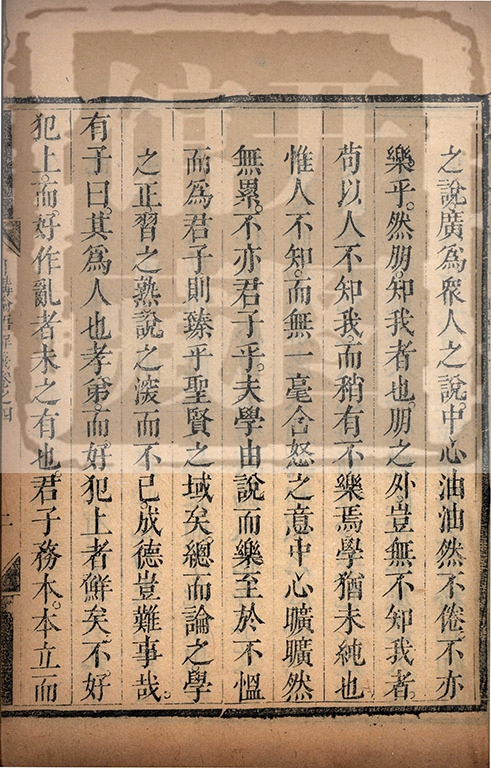 之說廣爲衆人之說中心油油然不倦不亦
樂乎。然朋。知我者也朋之外。豈無不知我者。
茍以人不知我。而稍有不樂焉學猶未純也
惟人不知。而無一毫含怒之意中心曠曠然
無累。不亦君子乎。夫學由說而樂至於不慍
而爲君子則臻乎聖賢之域矣。總而論之學
之正習之熟說之深而不已。成德豈難事哉。
有子曰。其爲人也孝弟。而。好犯上者鮮矣不好
犯上。而。好作亂者未之有也。君子務本。本立而